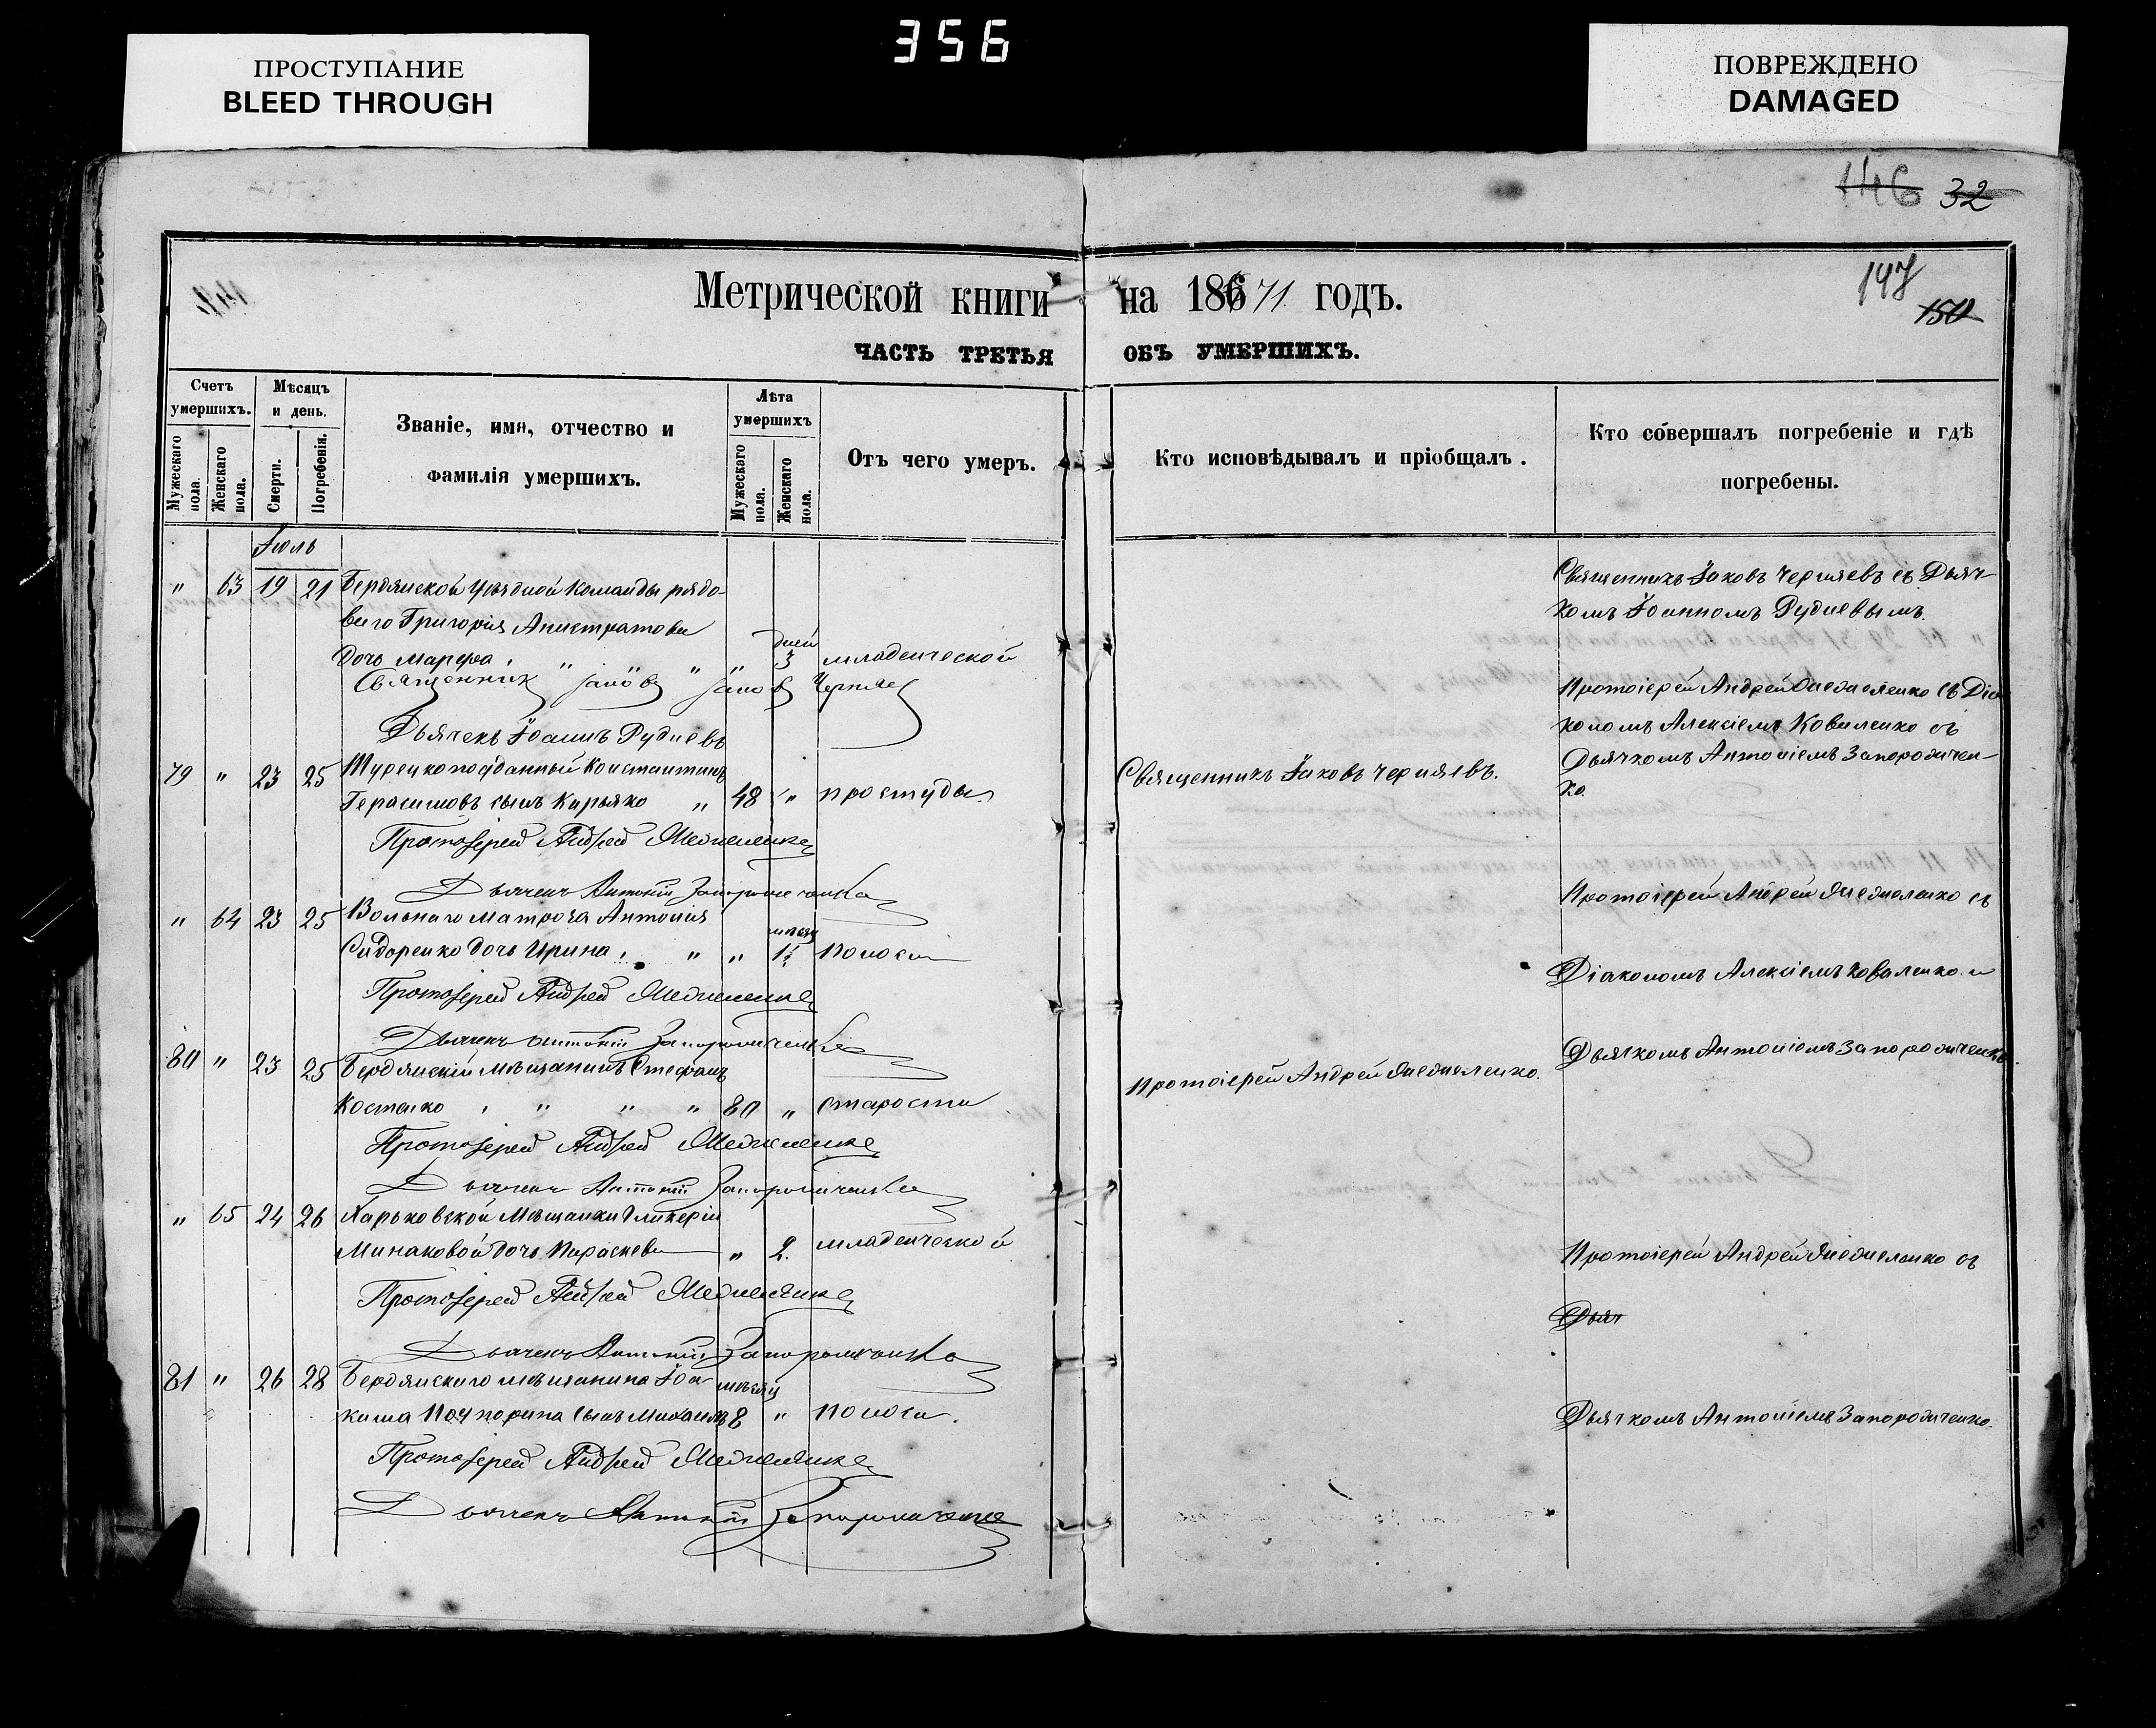 356
ПРОСТУПАНИЕ
BLEED THROUGH
ПОВРЕЖДЕНО
DAMAGED
146 32
147
150
Метрической книги на 18671 годъ.
ЧАСТЬ ТРЕТЬЯ ОБЪ УМЕРШИХЪ.
Счетъ умершихъ.
Мужескаго пола.
Женскаго пола.
Мѣсяцъ и день.
Смерти.
Погребенія.
Званіе, имя, отчество и
фамилія умершихъ.
Лѣта умершихъ
Мужескаго пола.
Женскаго пола.
Отъ чего умеръ.
Кто исповѣдывалъ и пріобщалъ.
Кто совершалъ погребеніе и гдѣ
погребены.
Іюль
" 63 19 21 Бердянской уѣздной команды рядо-
ваго Григорія Апистратова
дочь Марфа, " " " " дней 3 младенческой
Священникъ Іаковъ Черняевъ съ Дьяч-
комъ Іоанномъ Рудневымъ.
Священник Іаковъ Черняев
Дьячекъ Іоаннъ Рудневъ
79 " 23 25 Турецкоподданный Константинъ
Герасимовъ сынъ Кирьяко " 48 " простуды
Священникъ Іаковъ Черняевъ.
Протоіерей Андрей съ Діа-
кономъ Алексіемъ Коваленко съ
Дьячкомъ Антоніемъ Запорожчен-
ко.
Протоіерей Андрей
Дьячекъ Антоній Запорожченко
" 64 23 25 Вольнаго матроза Антонія
Сидоренко дочь Ирина, " " мѣсяц 1½ поноса
Протоіерей Андрей съ
Діакономъ Алексіемъ Коваленко и
Дьячкомъ Антоніемъ Запорожченко
Протоіерей Андрей
Дьячекъ Антоній Запорожченко
80 " 23 25 Бердянскій мѣщанинъ Стефанъ
Костенко , " " " 80 " старости
Протоіерей Андрей
Протоіерей Андрей
Дьячекъ Антоній Запорожченко
" 65 24 26 Харьковской мѣщанки Гликеріи
Минаковой дочь Параскева " 2. младенческой
Протоіерей Андрей съ
Дьяч
Протоіерей Андрей
Дьячекъ Антоній Запорожченко
81 " 26 28 Бердянскаго мѣщанина Іоа-
кима сынъ Михаилъ мѣсяц 8 " поноса.
Дьячкомъ Антоніемъ Запорожченко.
Протоіерей Андрей
Дьячекъ Антоній Запорожченко